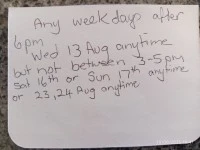 Any weekdays after
6pm
Wed 13 Aug anytime
but not between 3-5pm
Sat 16th or Sun 17th anytime
or 23,24 Aug anytime